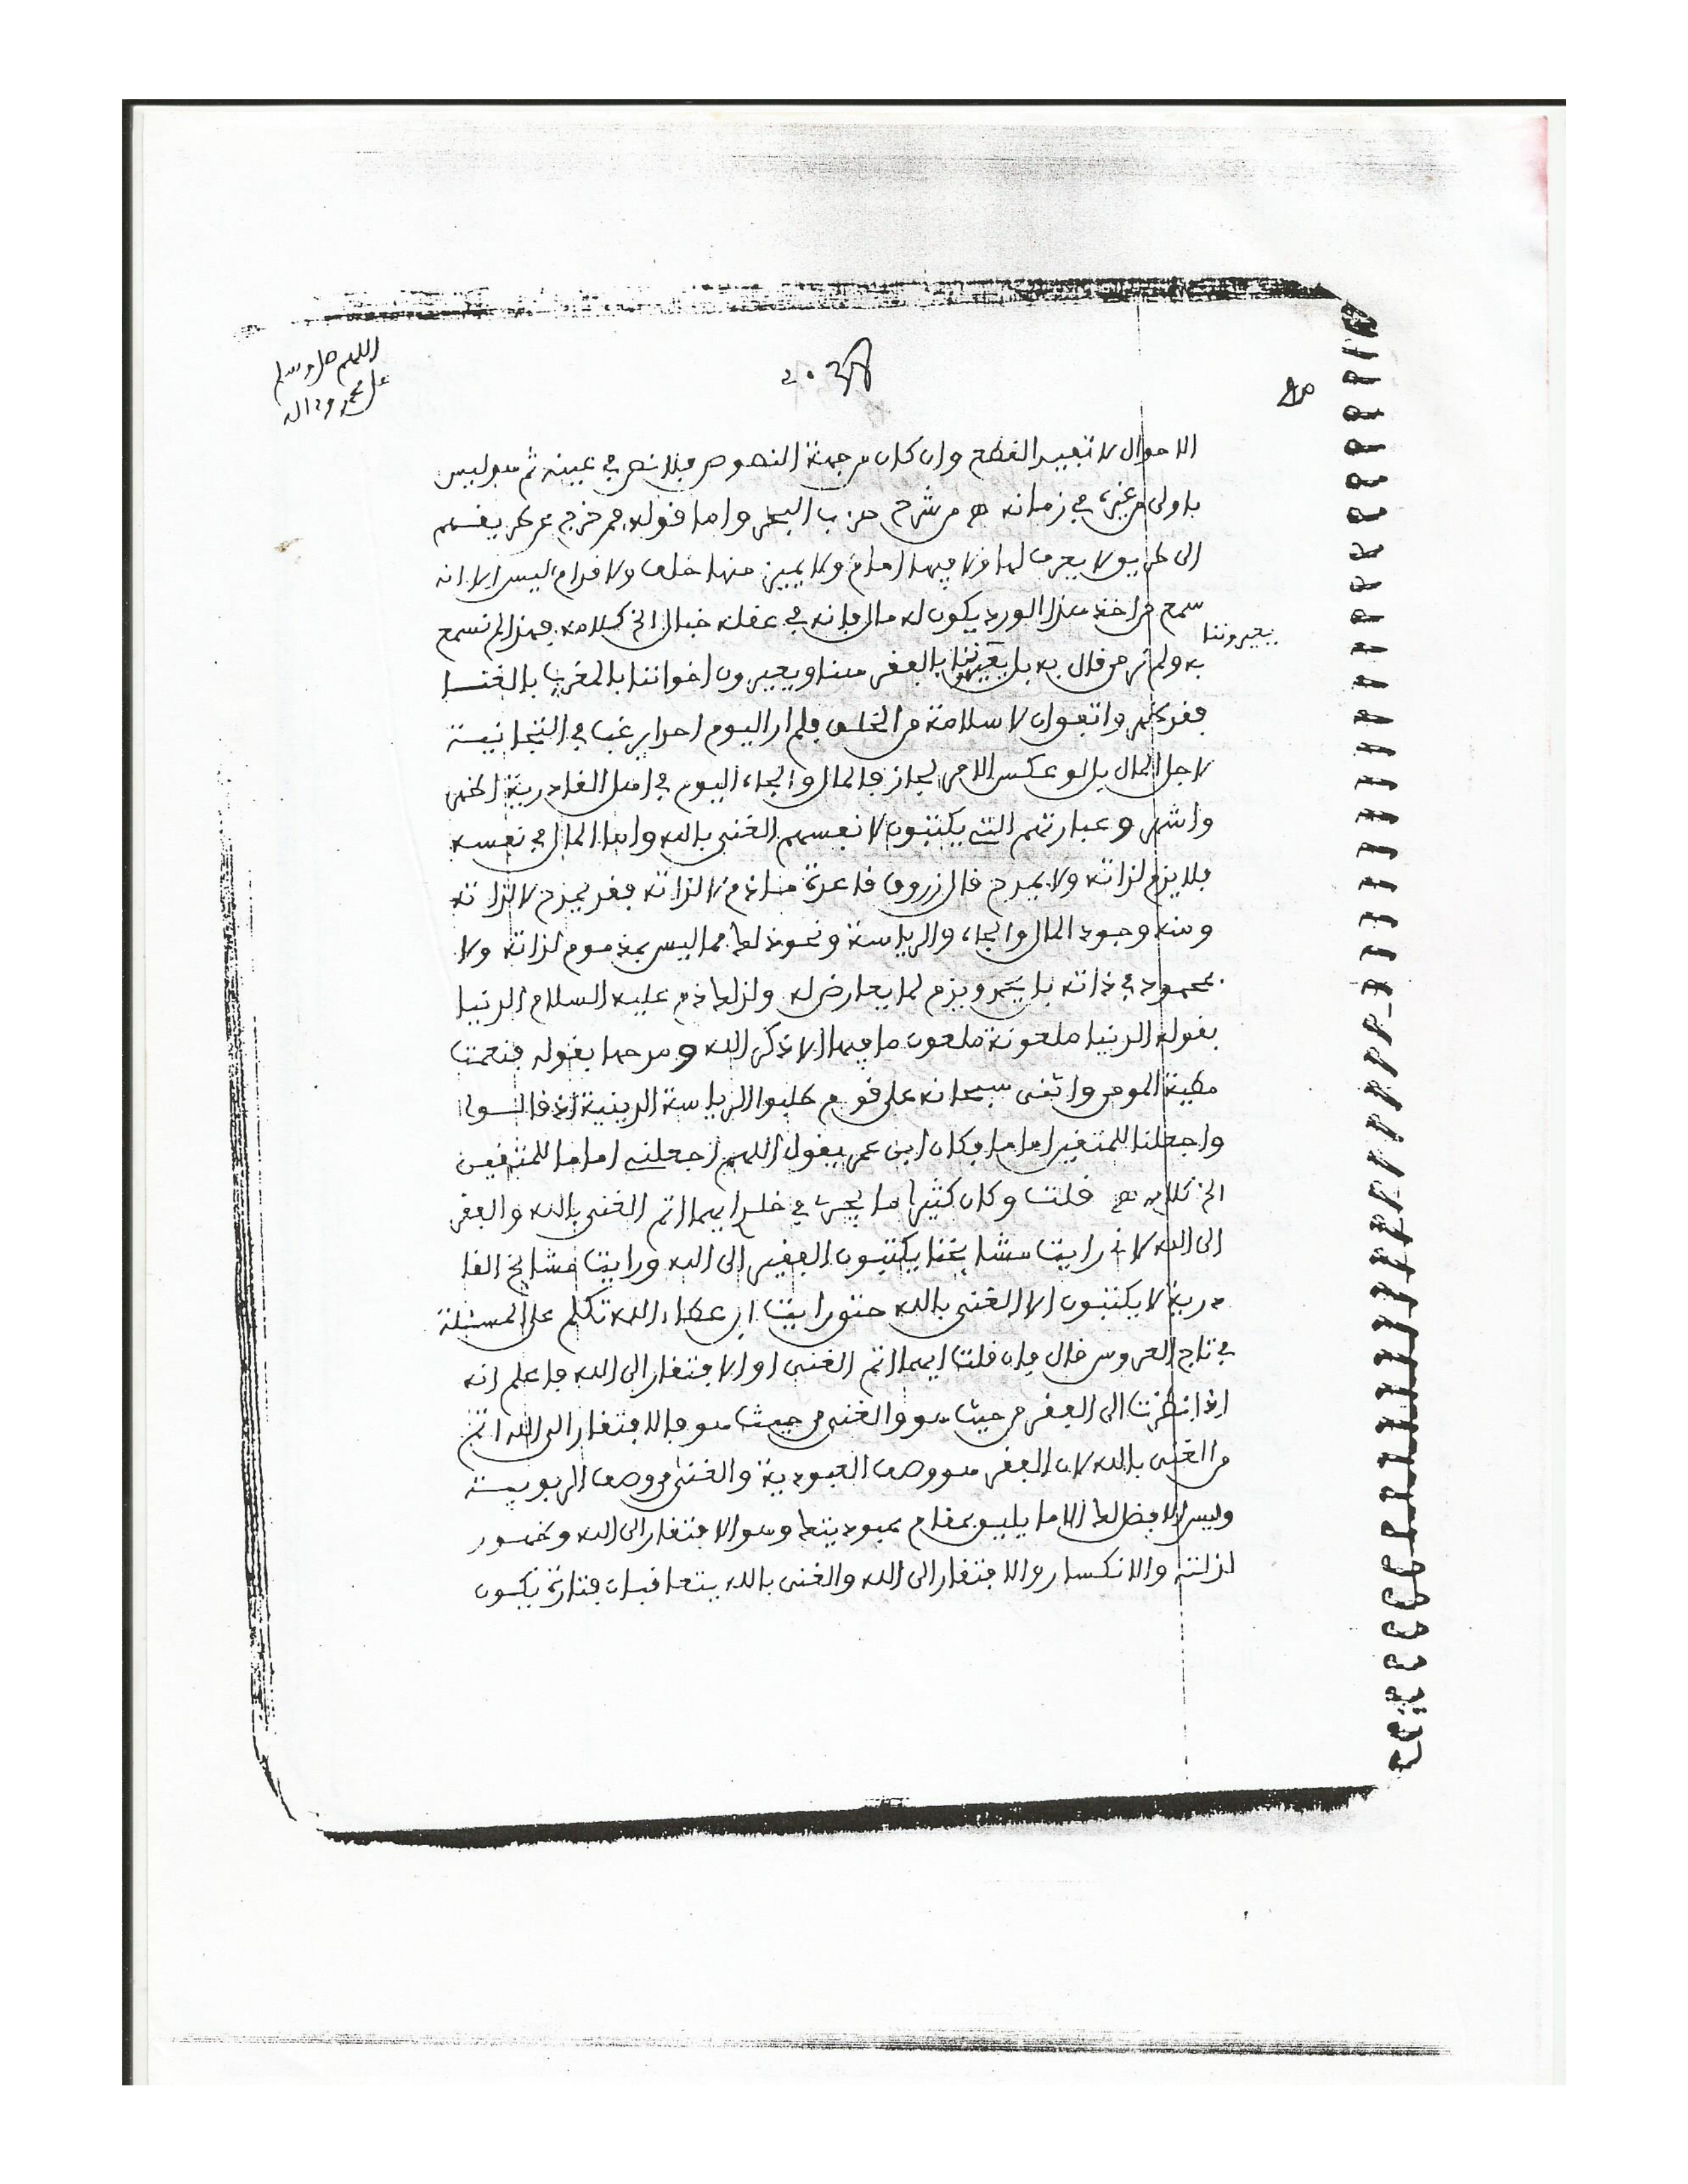 اللهم صل وسلم
على محمد وءاله
الاحوال لا تفيد القطع وان كان من جهة النصوص فلا نص في عينه ثم هو ليس
باولى من غيره في زمانه ه من شرح حزب البحر واما قوله فمن خرج عن طريقهم
الى طريق لا يعرف لها ولا فيها امام ولا يميز منها خلف ولا قدام ليس الا انه
سمع من اخذ هذا الورد يكون له مال فانه في عقله خبال الخ كلامه فهذا لم نسمع
يعيروننا
به ولم نر من قال به بل يعيروننا بالفقر هنا ويعيرون اخواننا بالمغرب بالغنا
فقد كلهم واتفوان لا سلامة من الخلق فلم ار اليوم احدا يرغب في التجانية
لاجل المال بل لو عكس الامر لجاز فالمال والجاه اليوم في اهل القادرية اكثر
واشهر وعبارتهم التي يكتبون لانفسهم الغني بالله واما المال في نفسه
فلا يذم لذاته ولا يمدح قال زروق قاعدة ما ذم لا لذاته فقد يمدح لا لذاته
ومنه وجود المال والجاه والرياسة ونحو ذلك مما ليس بمذموم لذاته ولا
محمود في ذاته بل يحمد ويذم لما يعارض له ولذلك ذم عليه السلام الدنيا
بقوله الدنيا ملعونة ملعون ما فيها الا ذكر الله ومدحها بقوله فنعمت
مطية المومن واثنى سبحانه على قوم طلبوا الرياسة الدينية اذ قالوا
واجعلنا للمتقين اماما فكان ابن عمر يقول اللهم اجعلني اماما للمتقين
الخ كلامه ه قلت وكان كثيرا ما يجري في خلدي ايهما اتم الغنى بالله والفقر
الى الله لاني رايت مشايخنا يكتبون الفقير الى الله ورايت مشايخ القا
درية لا يكتبون الا الغني بالله حتى رايت ابن عطاء الله تكلم على المسئلة
في تاج العروس قال فان قلت ايهما اتم الغنى او الافتقار الى الله فاعلم انه
اذا نظرت الى الفقر من حيث هو والغنى من حيث هو فالافتقار الى الله اتم
من الغنى بالله لان الفقر هو وصف العبودية والغنى من وصف الربوبية
وليس الافضل لك الا ما يليق بمقام عبوديتك وهو الافتقار الى الله وحضور
لذلته والانكسار والافتقار الى الله والغنى بالله يتعاقبان فتارة يكون